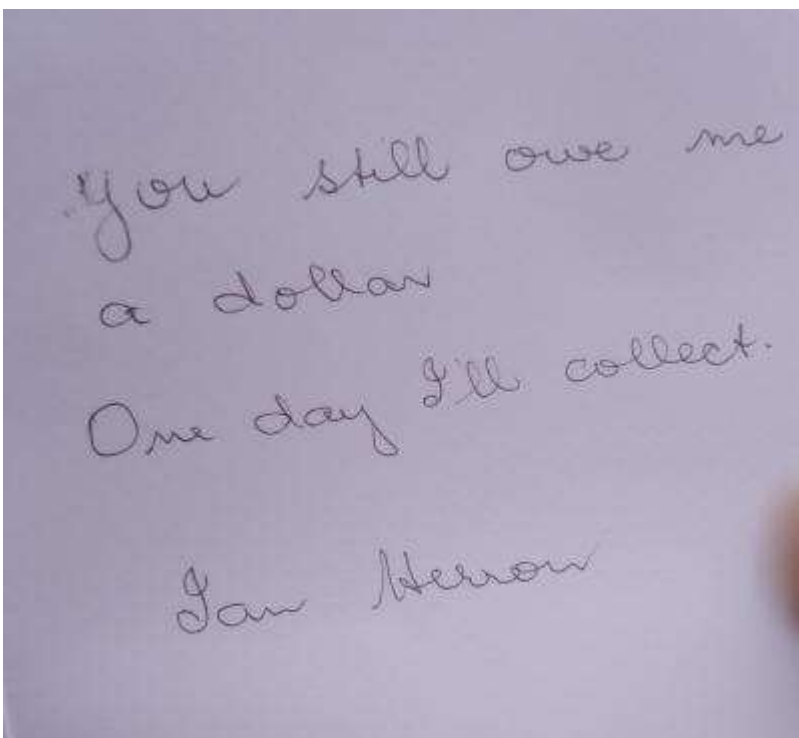 You still owe me
a dollar
One day I'll collect.
Ian Herron